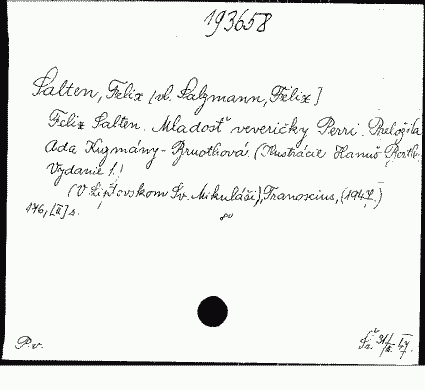 193658
Salten, Felix [vl. Salzmann, Felix]
Felix Salten. Mladosť veveričky Perri. Preložila
Ada Kuzmány-Bruothová. (Ilustrácie Hanuš
Vydanie 1.)
(V Lipt. Sv. Mikuláši), Tranoscius, (1947.)
176, [II] s. 8°
P.v.